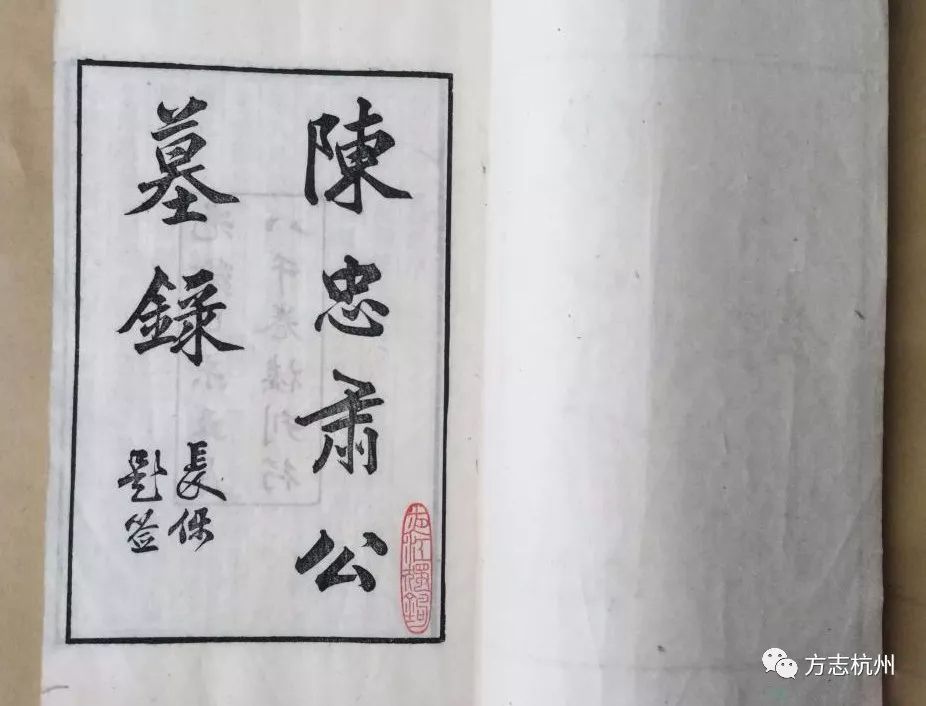 陳忠肅公
墓錄
長保
題签
方志杭州